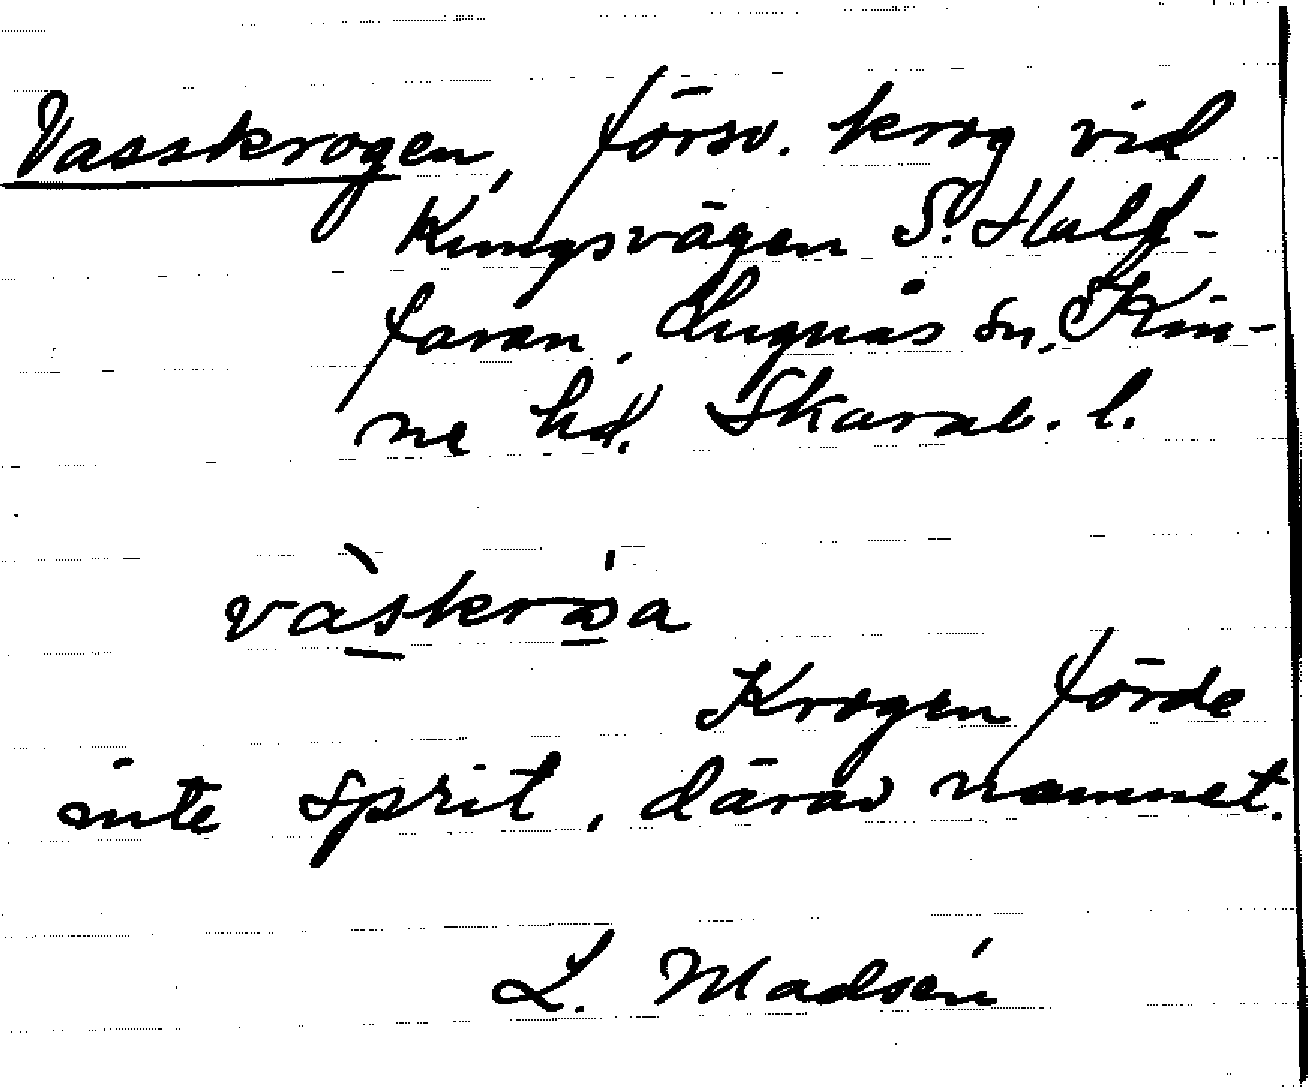 Vasskrogen, försv. krog vid
Kungsvägen S. Half-
faran, Lugnås sn, Kin-
ne hd. Skarab. l.
vàskrǻa
Krogen förde
inte sprit, därav namnet.
L. Madsén